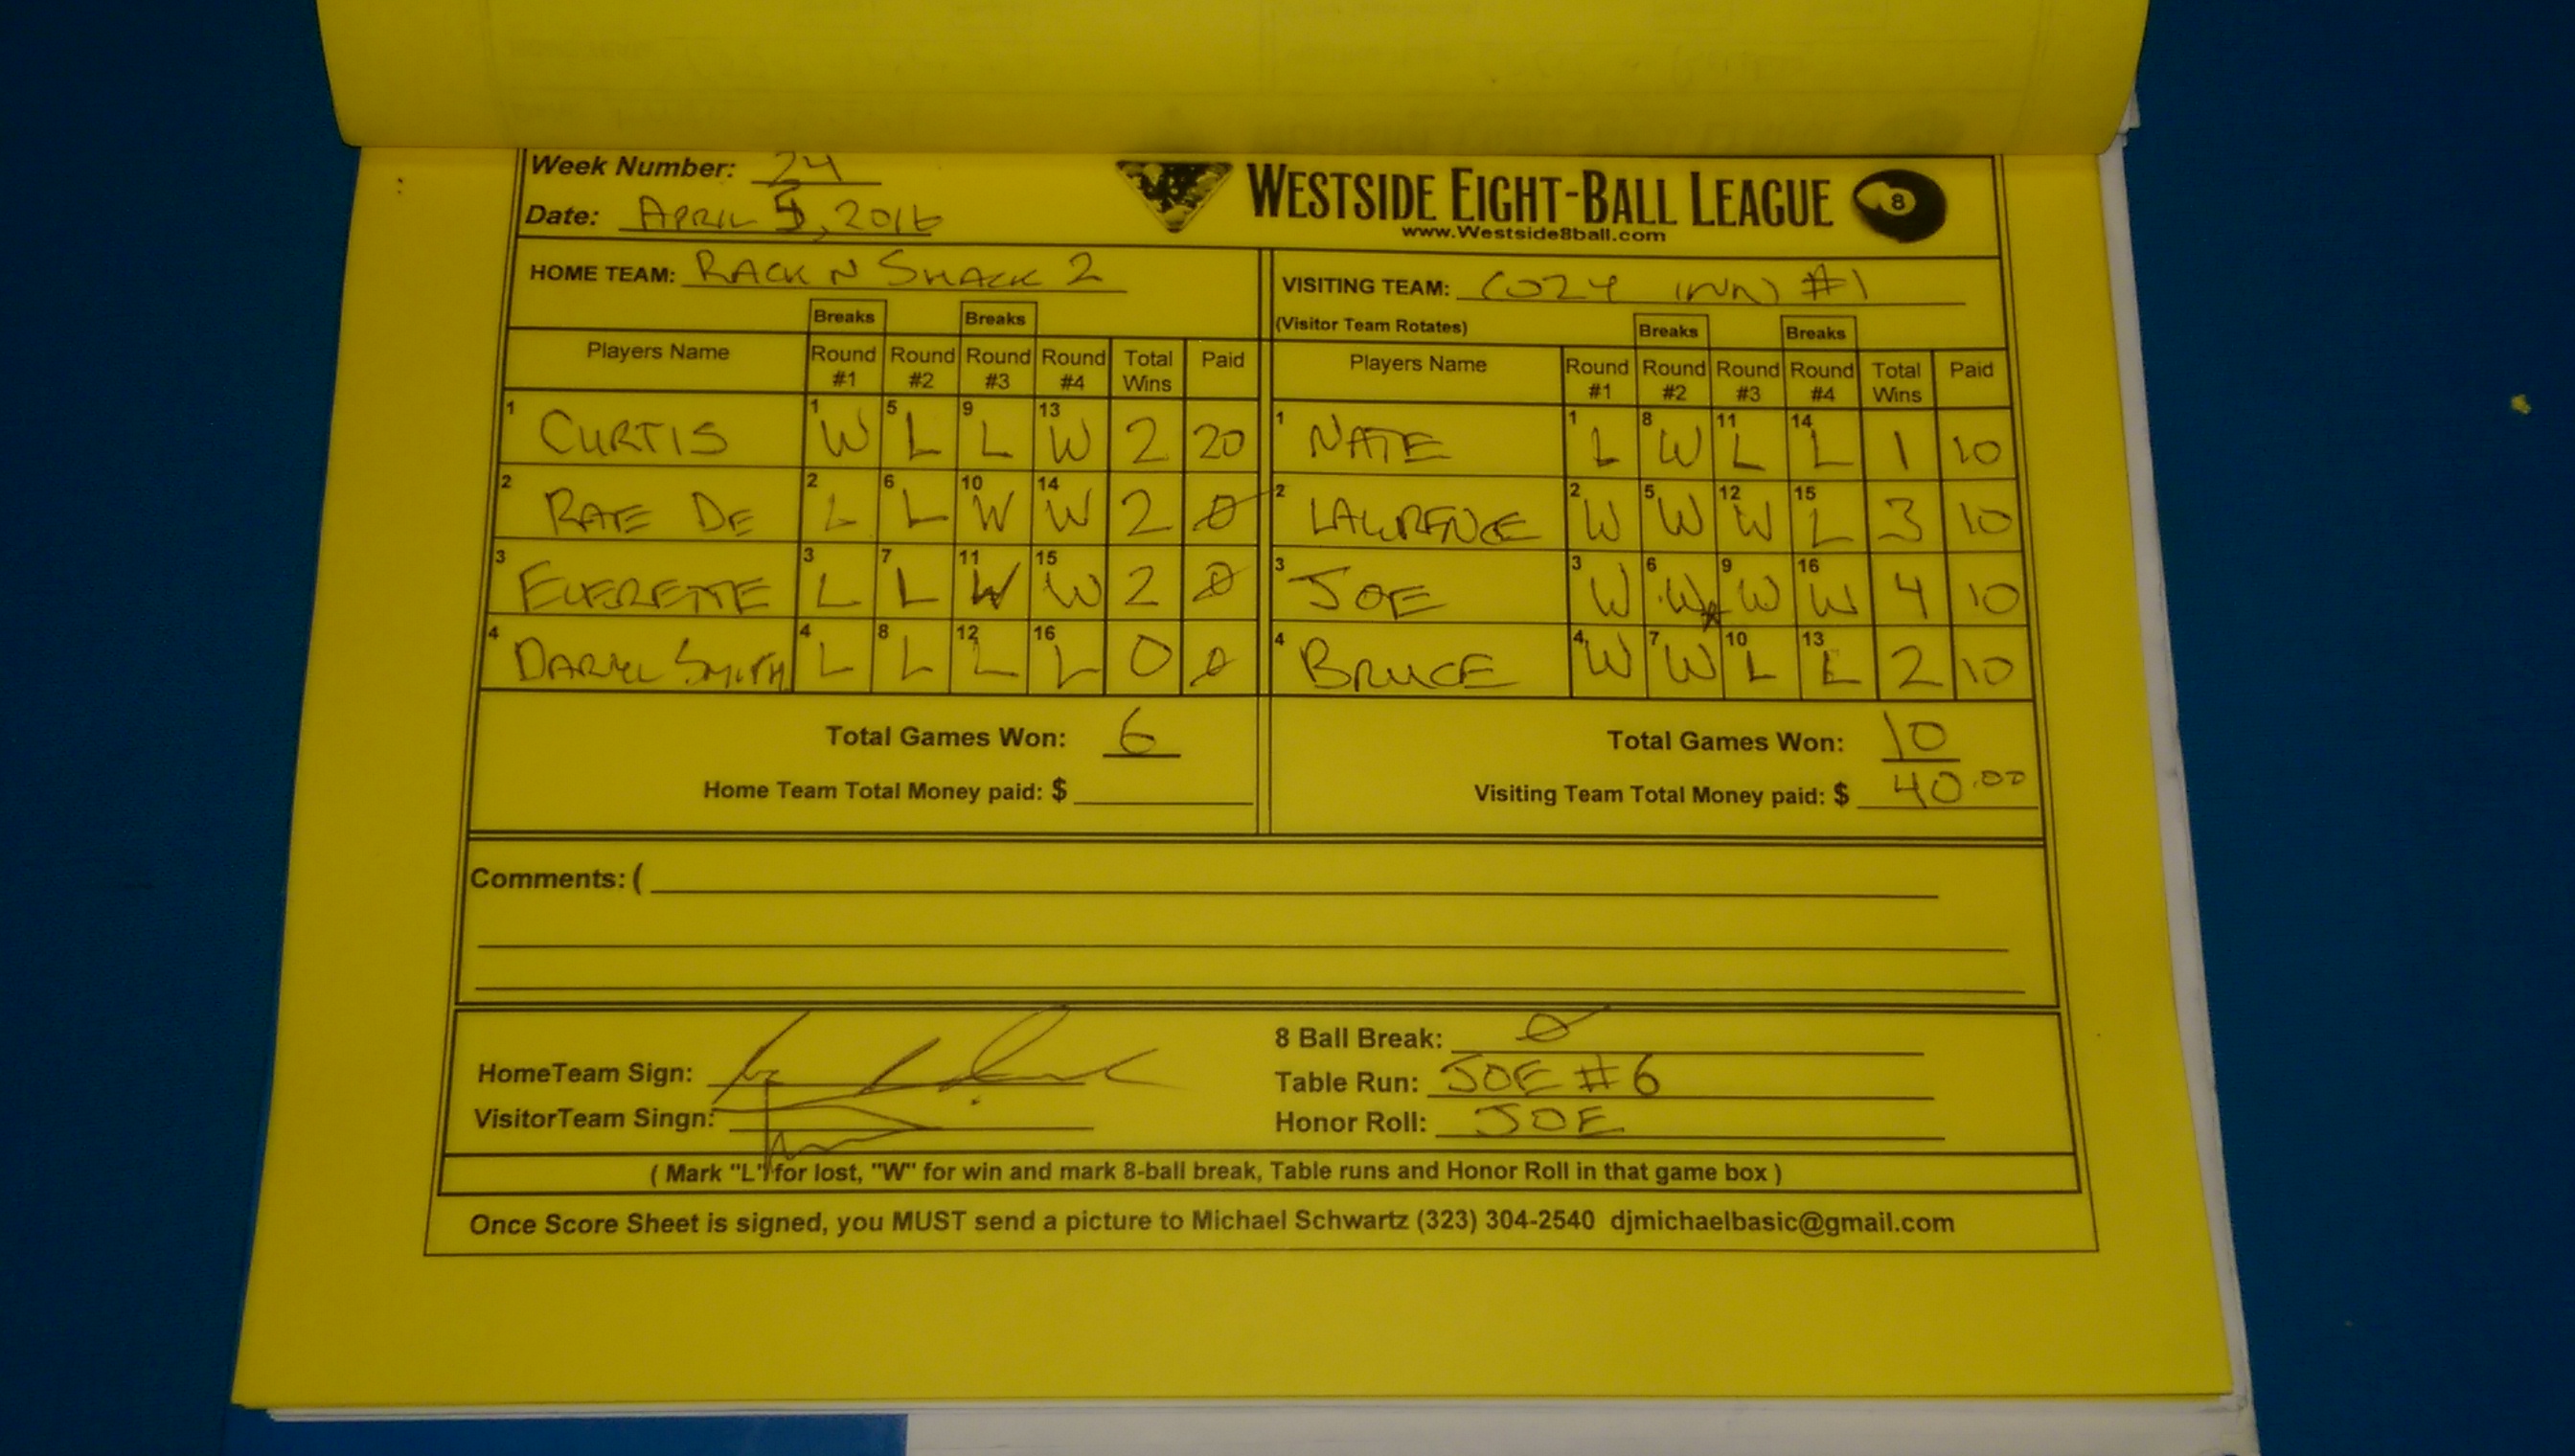 Week Number: 24
Date: APRIL 5, 2016
WESTSIDE EIGHT-BALL LEAGUE 8
www.Westside8ball.com
HOME TEAM: RACK N SMACK 2 VISITING TEAM: COZY INN #1
Breaks Breaks (Visitor Team Rotates) Breaks Breaks
Players Name Round #1 Round #2 Round #3 Round #4 Total Wins Paid Players Name Round #1 Round #2 Round #3 Round #4 Total Wins Paid
1 CURTIS 1 W 5 L 9 L 13 W 2 20 1 NATE 1 L 8 W 11 L 14 L 1 10
2 RAE DE 2 L 6 L 10 W 14 W 2 0 2 LAWRENCE 2 W 5 W 12 W 15 L 3 10
3 EVERETTE 3 L 7 L 11 W 15 W 2 0 3 JOE 3 W 6 W* 9 W 16 W 4 10
4 DARYL SMITH 4 L 8 L 12 L 16 L 0 0 4 BRUCE 4 W 7 W 10 L 13 L 2 10
Total Games Won: 6 Total Games Won: 10
Home Team Total Money paid: $ Visiting Team Total Money paid: $ 40.00
Comments: (
8 Ball Break: 0
HomeTeam Sign: Table Run: JOE #6
VisitorTeam Singn: Honor Roll: JOE
( Mark "L" for lost, "W" for win and mark 8-ball break, Table runs and Honor Roll in that game box )
Once Score Sheet is signed, you MUST send a picture to Michael Schwartz (323) 304-2540 djmichaelbasic@gmail.com